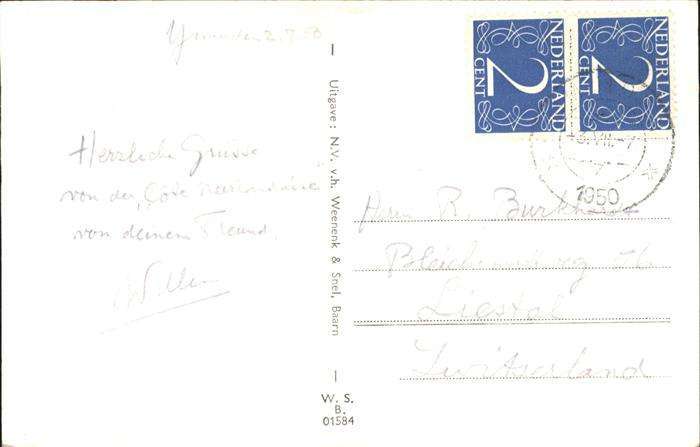 2.7.50
Herzliche Grüsse
von der "Côte néerlandaise"
von deinem Freund
Uitgave: N.V. v.h. Weenenk & Snel, Baarn
W. S.
B.
01584
NEDERLAND
2
CENT
NEDERLAND
2
CENT
1950
Herrn R. Burkhardt
Liestal
Switserland